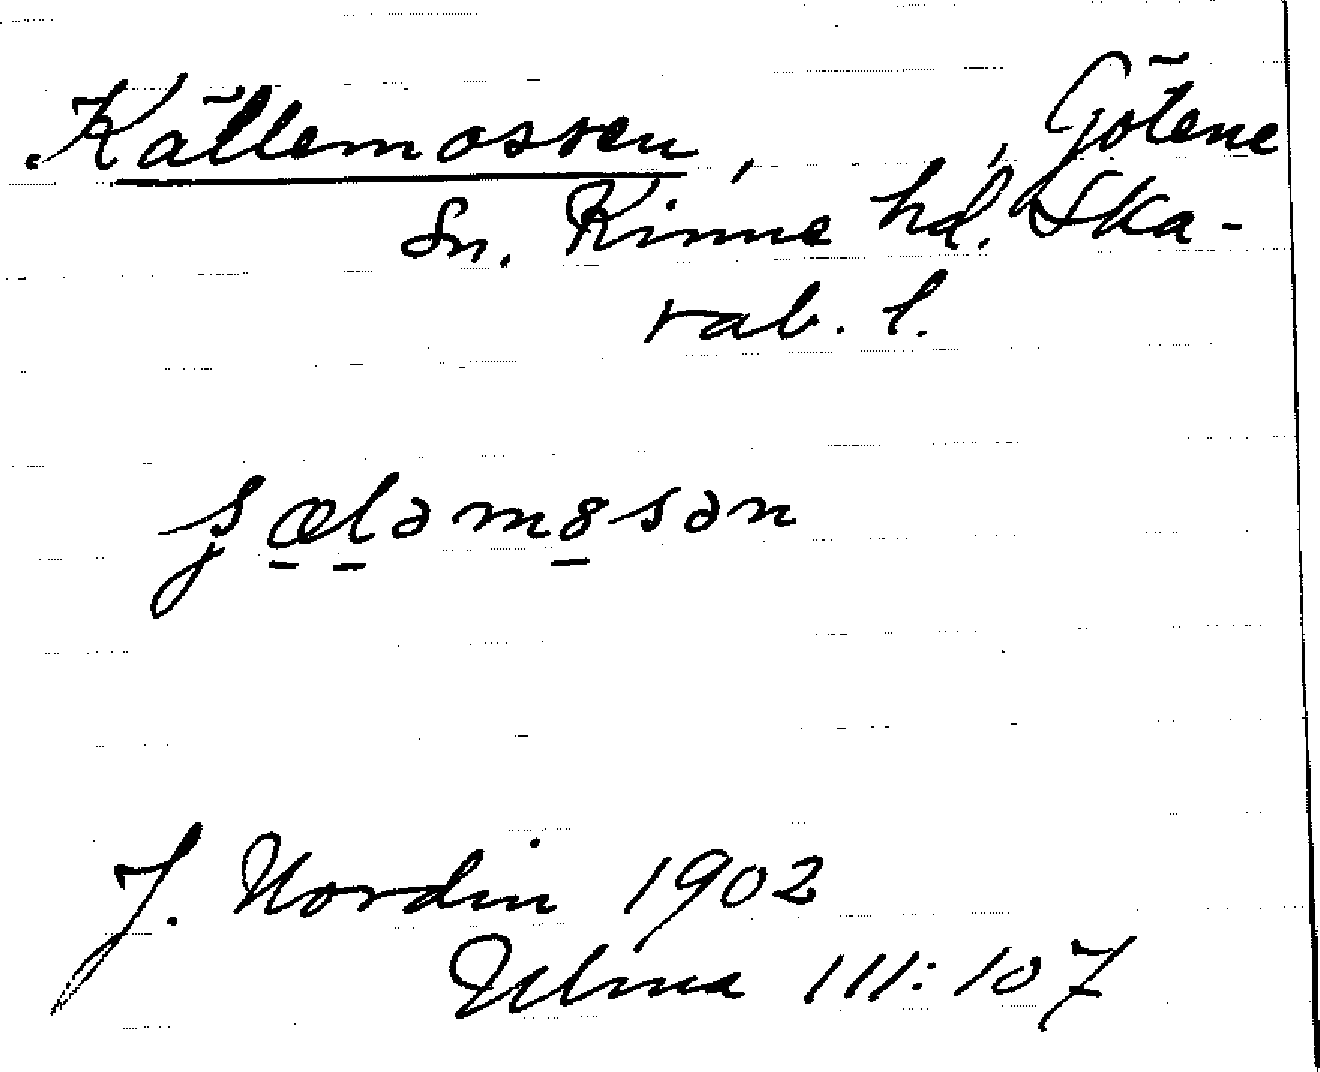 Källemossen, , Götene
Sn. Kinne hd. Ska-
rab. l.
J. Nordin 1902
Ulma 111:107